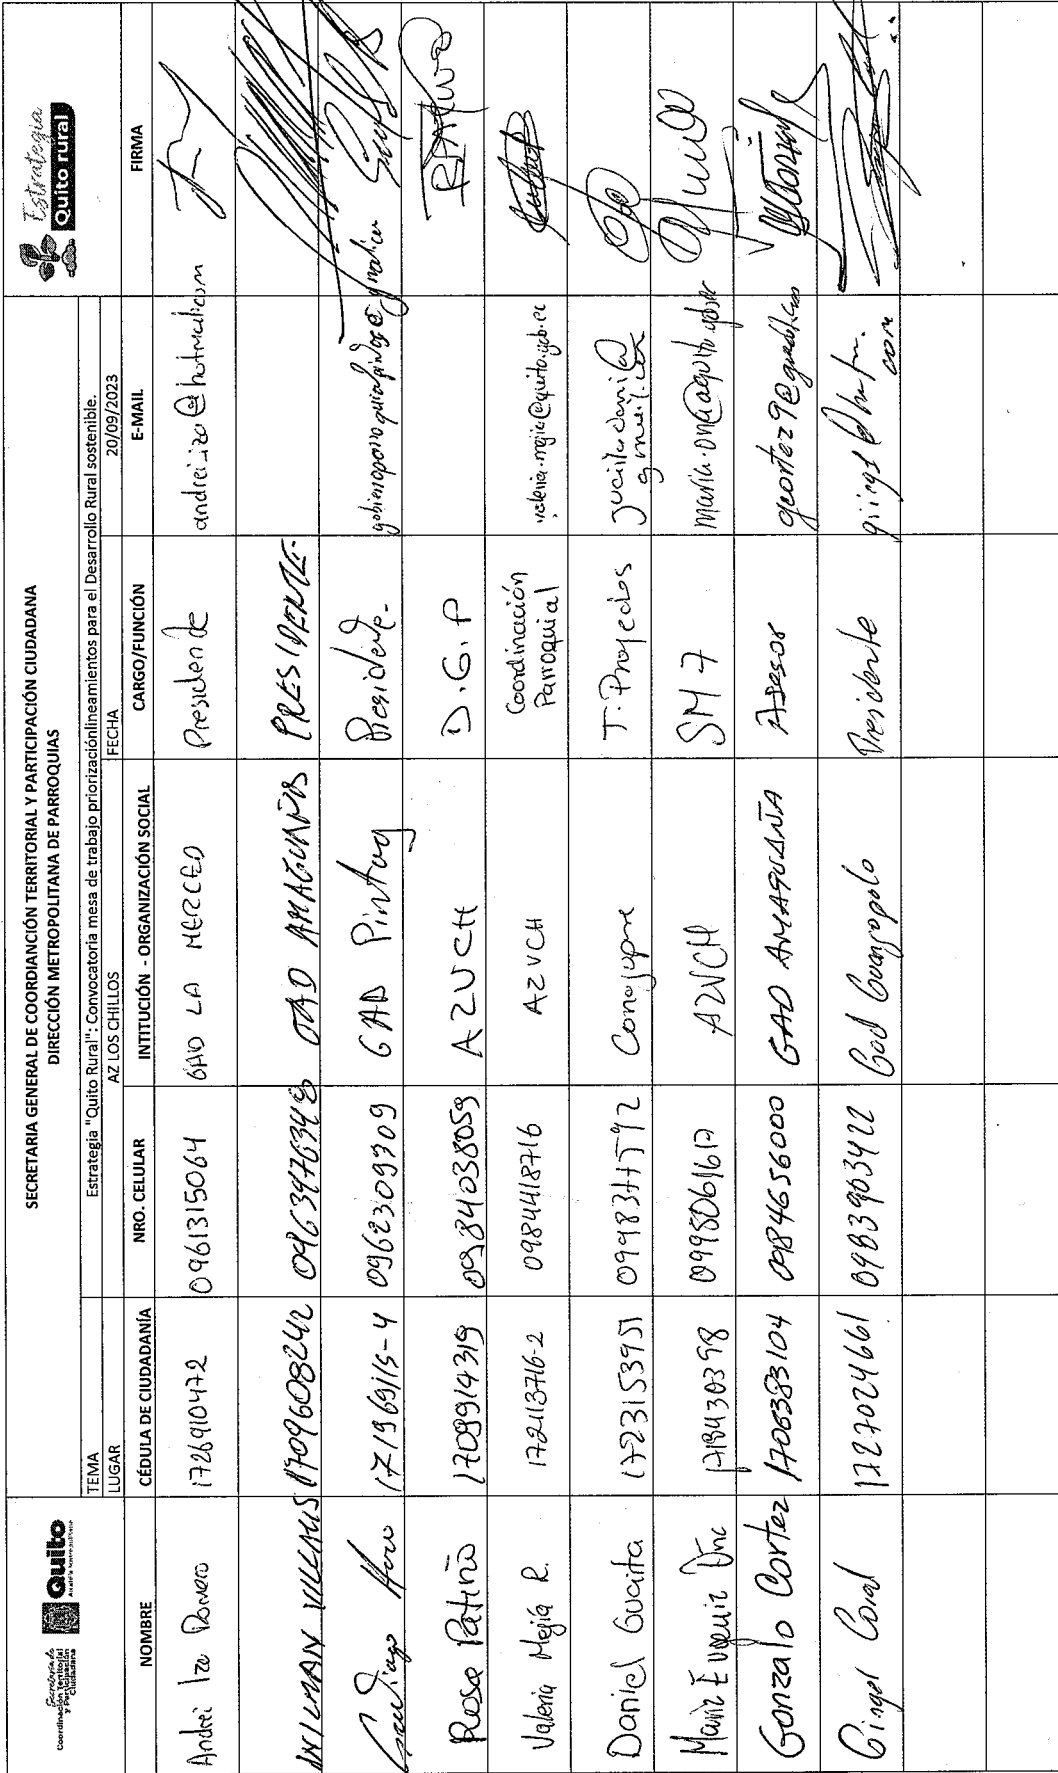 Secretaría de
Coordinación Territorial
y Participación
Ciudadana
Quito
Alcaldía Metropolitana
SECRETARIA GENERAL DE COORDIANCIÓN TERRITORIAL Y PARTICIPACIÓN CIUDADANA
DIRECCIÓN METROPOLITANA DE PARROQUIAS
Estrategia
Quito rural
TEMA Estrategia "Quito Rural": Convocatoria mesa de trabajo priorizaciónlineamientos para el Desarrollo Rural sostenible.
LUGAR AZ LOS CHILLOS FECHA 20/09/2023
NOMBRE CÉDULA DE CIUDADANÍA NRO. CELULAR INTITUCIÓN - ORGANIZACIÓN SOCIAL CARGO/FUNCIÓN E-MAIL FIRMA
Andrei Iza Romero 1726910472 0961315064 GAD LA MERCED Presidente andrei.iza@hotmail.com
WILMAN VILLALIS 1709608242 0963476348 GAD AMAGUAÑA PRESIDENTE.
Santiago Haro 171969115-4 0962309309 GAD Pintag Presidente.
Rosa Patiño 1709914319 0984038059 AZVCH D.G.P
Valeria Mejía R. 172113716-2 0984418716 AZVCH Coordinación Parroquial valeria.mejia@quito.gob.ec
Daniel Guaita 1723153951 Conagopare T. Proyectos
María Eugenia Oña AZVCH SM7
Gonzalo Cortez 1706383104 0984656000 GAD AMAGUAÑA Asesor
Coral 1727024661 0983903422 Gad Guangopolo Presidente